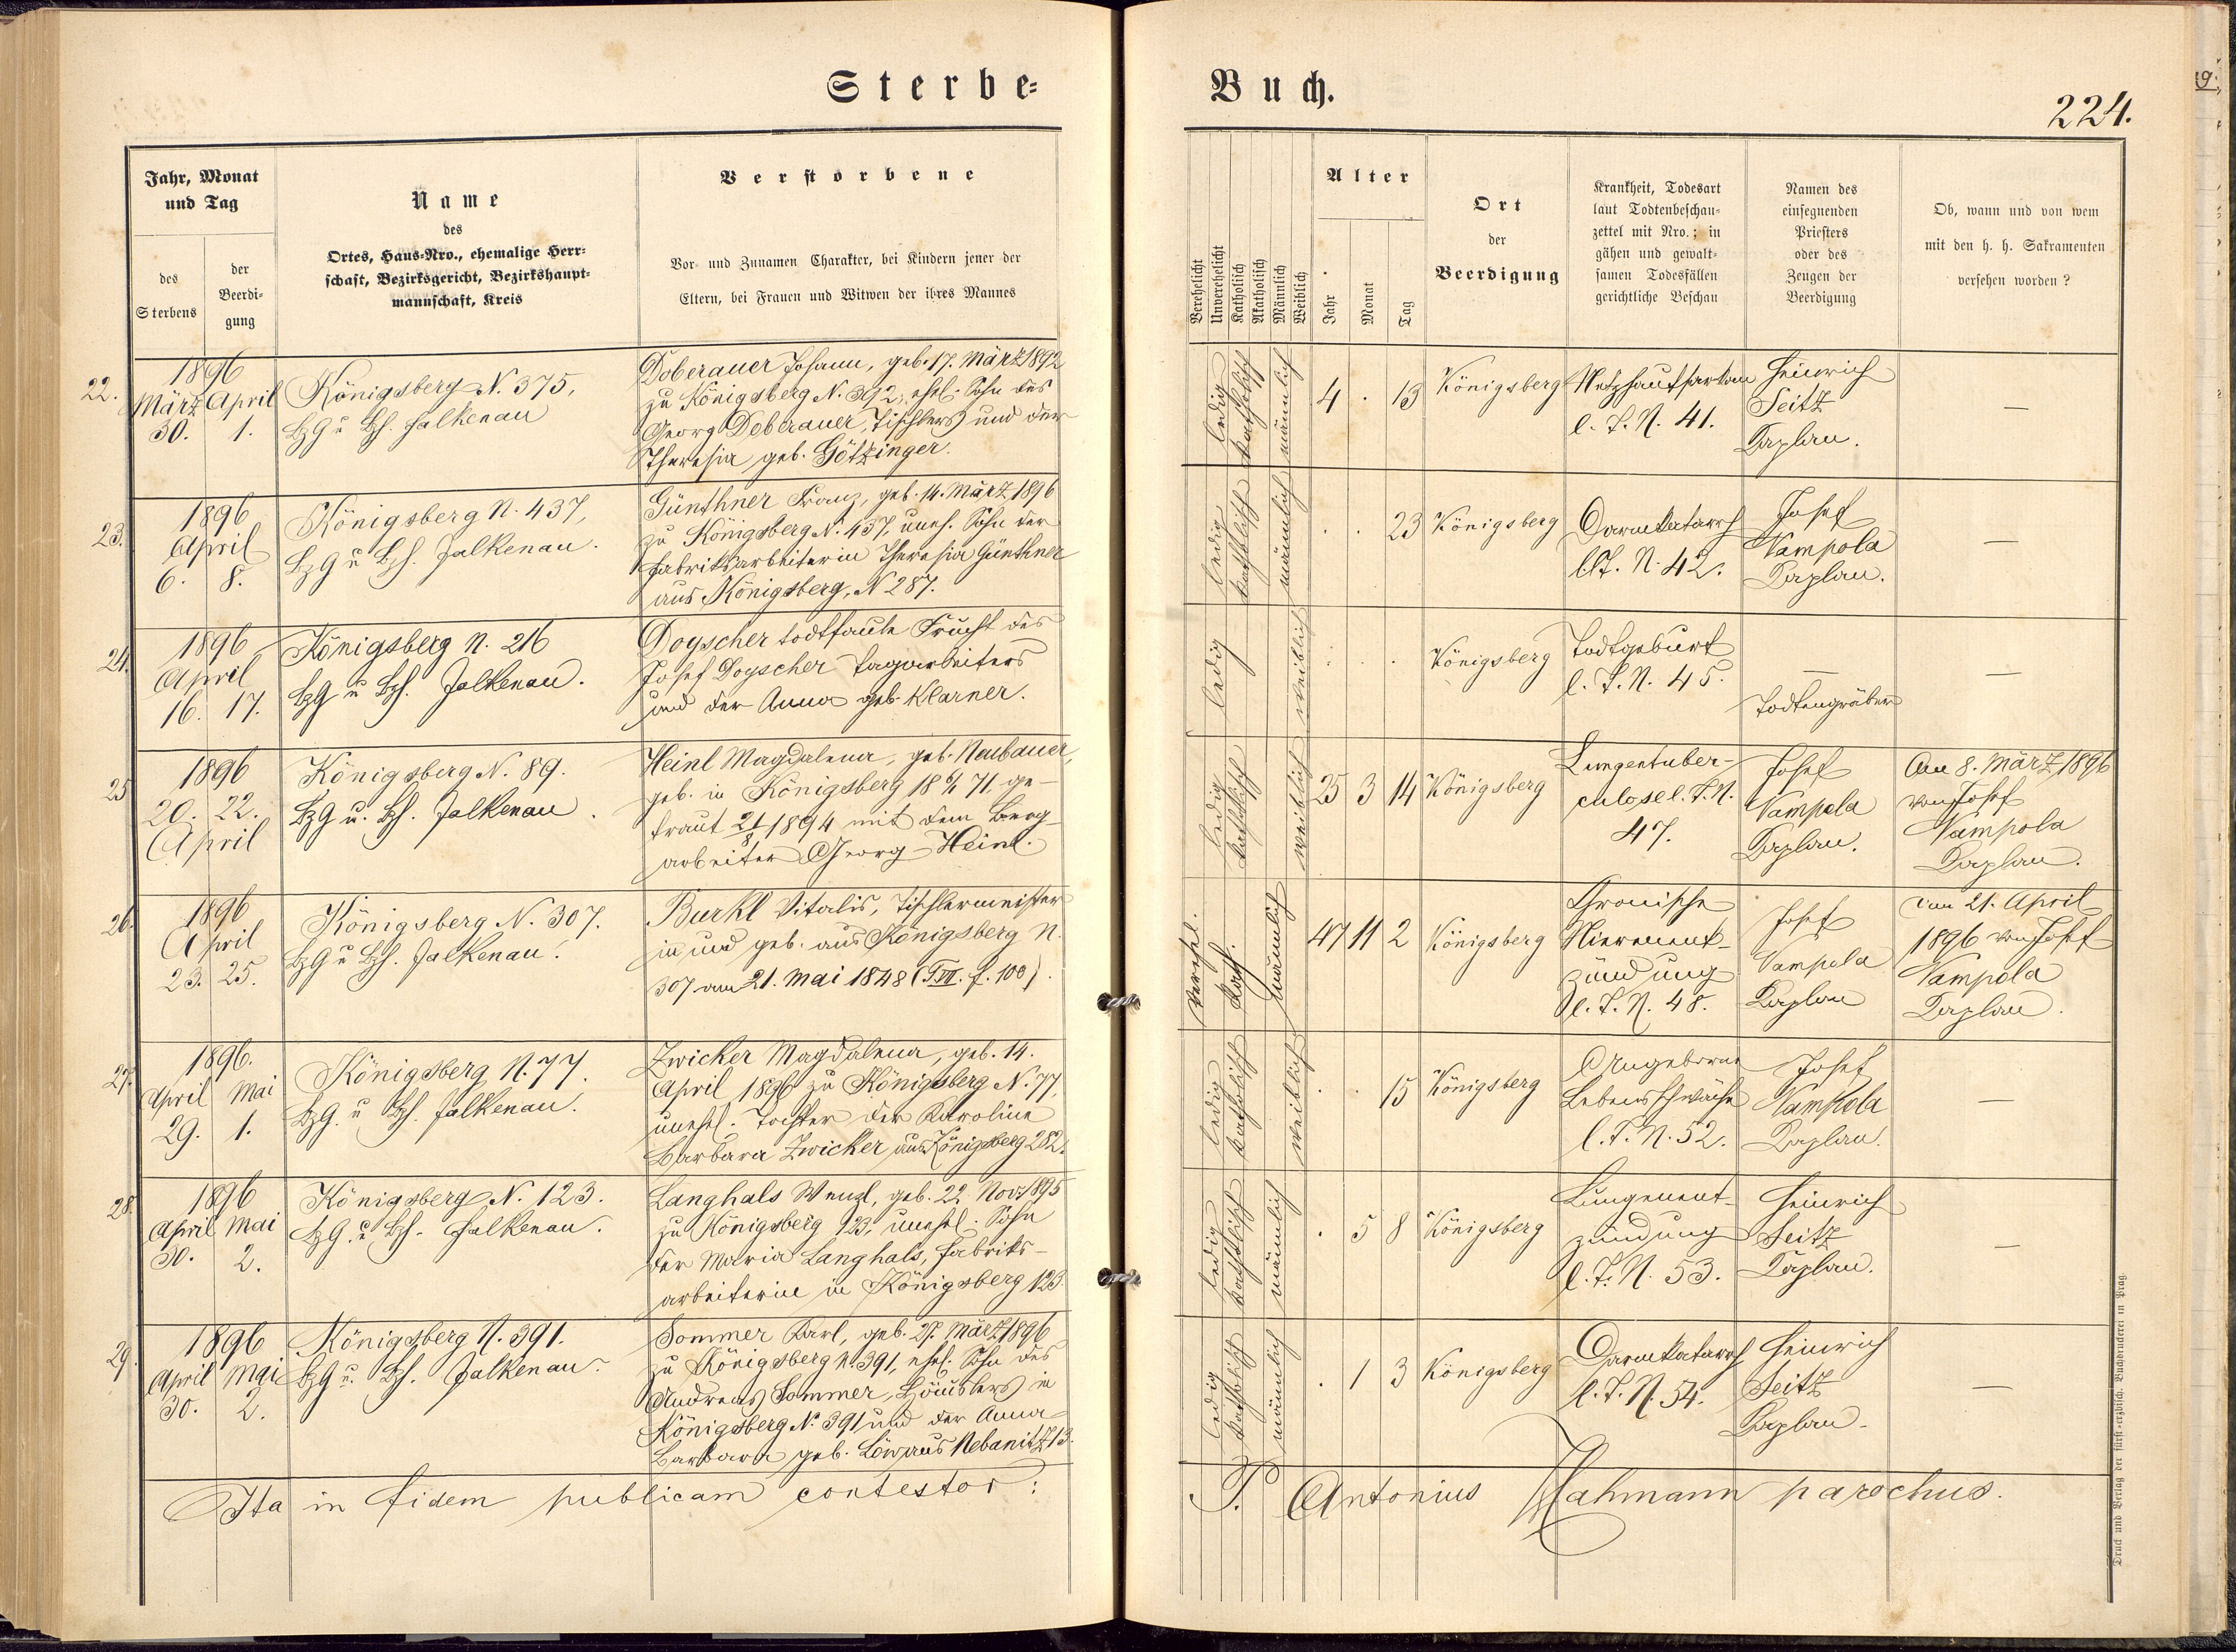 Sterbe=
Buch.
224.
Jahr, Monat
und Tag
des
Sterbens
der
Beerdi=
gung
Name
des
Ortes, Haus=Nro., ehemalige Herr=
schaft, Bezirksgericht, Bezirkshaupt=
mannschaft, Kreis
Verstorbene
Vor= und Zunamen Charakter, bei Kindern jener der
Eltern, bei Frauen und Witwen der ihres Mannes
Verehelicht
Unverehelicht
Katholisch
Akatholisch
Männlich
Weiblich
Alter
Jahr
Monat
Tag
Ort
der
Beerdigung
Krankheit, Todesart
laut Todtenbeschau=
zettel mit Nro.; in
gähen und gewalt=
samen Todesfällen
gerichtliche Beschau
Namen des
einsegnenden
Priesters
oder des
Zeugen der
Beerdigung
Ob, wann und von wem
mit den h. h. Sakramenten
versehen worden?
22.
1896
März April
30. 1.
Königsberg N. 375,
BzG u Bzh. Falkenau
Doberauer Johann, geb. 17. März 1892
zu Königsberg N. 392, ehel. Sohn des
Georg Doberauer, Tischlers und der
Theresia geb. Götzinger.
ledig
katholisch
männlich
4 . 13
Königsberg
l. T. N. 41.
Heinrich
Seitz
Kaplan.
—
23.
1896
April
6. 8.
Königsberg N. 437,
BzG u Bzh. Falkenau.
Günthner Franz, geb. 14. März 1896
zu Königsberg N. 437, uneh. Sohn der
Fabriksarbeiterin Theresia Günthner
aus Königsberg, N 287.
ledig
katholisch
männlich
. . 23
Königsberg
Darmkatarrh
l. T. N. 42.
Josef
Nampola
Kaplan.
—
24.
1896
April
16. 17.
Königsberg N. 216
BzG u Bzh. Falkenau.
Doyscher todtfaule Frucht des
Josef Doyscher Tagarbeiters
und der Anna geb. Klarner.
ledig
weiblich
. . .
Königsberg
Todtgeburt
l. T. N. 45.
—
Todtengräber
—
25
1896
20. 22.
April
Königsberg N. 89.
BzG u. Bzh. Falkenau.
Heinl Magdalena, geb. Neubauer,
geb. in Königsberg 18 6/1 71, ge-
traut 21/8 1894 mit dem Berg-
arbeiter Georg Heinl.
ledig
katholisch
weiblich
25 3 14
Königsberg
Lungentuber-
culose l. T. N.
47.
Josef
Nampola
Kaplan.
Am 8. März 1896
von Josef
Nampola
Kaplan.
26.
1896
April
23. 25.
Königsberg N. 307.
BzG u Bzh. Falkenau.
Burkl Vitalis, Tischlermeister
in und geb. aus Königsberg N.
307 am 21. Mai 1848 (T. VII. f. 100).
verehel.
kath.
männlich
47 11 2
Königsberg
Chronische
Nierenent-
zündung
l. T. N. 48.
Josef
Nampola
Kaplan
Am 21. April
1896 von Josef
Nampola
Kaplan.
27.
1896.
April Mai
29. 1.
Königsberg N. 77.
BzG. u Bzh. Falkenau.
Zwicker Magdalena, geb. 14.
April 1896 zu Königsberg N. 77,
unehel. Tochter der Karoline
Barbara Zwicker aus Königsberg 282.
ledig
katholisch
weiblich
. . 15
Königsberg
Angeborne
Lebensschwäche
l. T. N. 52.
Josef
Nampola
Kaplan.
—
28.
1896
April Mai
30. 2.
Königsberg N. 123.
BzG. u Bzh. Falkenau.
Langhals Wenzl, geb. 22 Nov 1895
zu Königsberg 123, unehel. Sohn
der Maria Langhals, Fabriks-
arbeiterin in Königsberg 123.
ledig
katholisch
männlich
. 5 8
Königsberg
Lungenent-
zündung
l. T. N. 53.
Heinrich
Seitz
Kaplan.
—
29.
1896
April Mai
30. 2.
Königsberg N. 391.
BzG u. Bzh. Falkenau.
Sommer Karl, geb. 27. März 1896
zu Königsberg N. 391, ehel. Sohn des
Andreas Sommer, Häuslers in
Königsberg N. 391 und der Anna
Barbara geb. Löw aus Nebanitz 13.
ledig
katholisch
männlich
. 1 3
Königsberg
Darmkatarrh
l. T. N. 54.
Heinrich
Seitz
Kaplan.
—
Ita in fidem publicam contestor:
P. Antonius Hahmann parochus.
Druck und Verlag der fürst=erzbisch. Buchdruckerei in Prag.